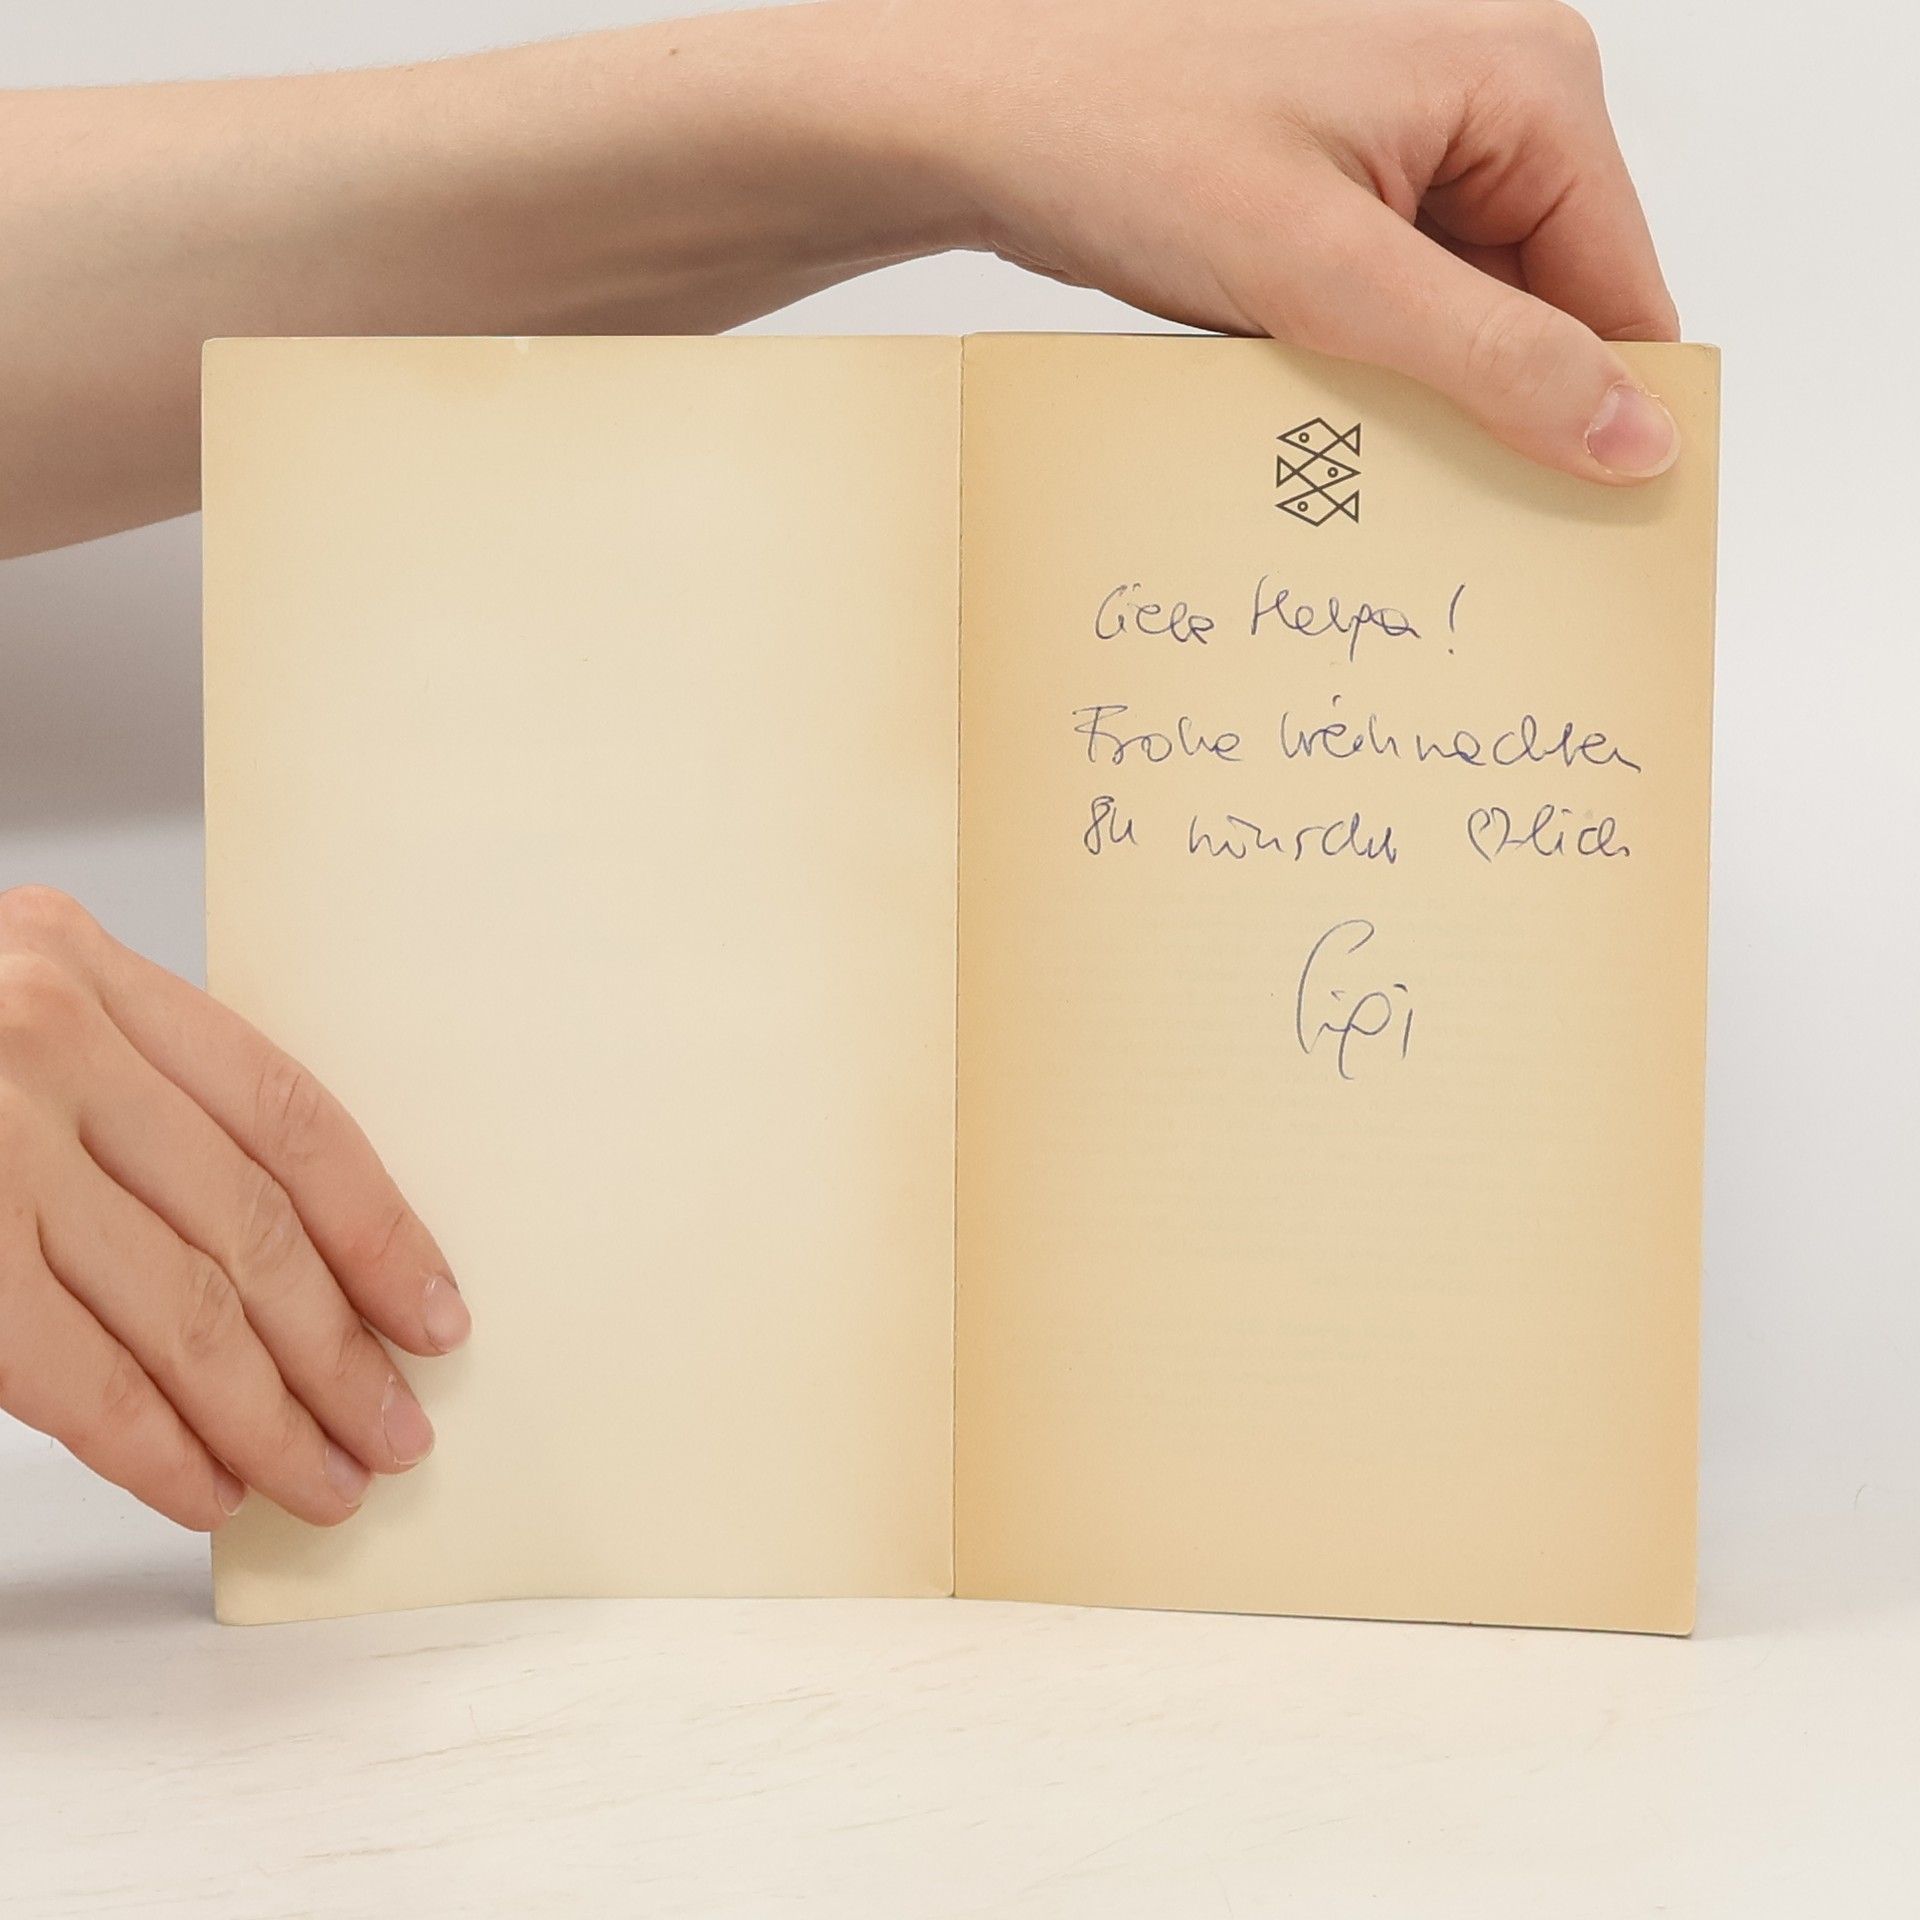 Liebe Helga!
Frohe Weihnachten
zu wünscht ♡lich